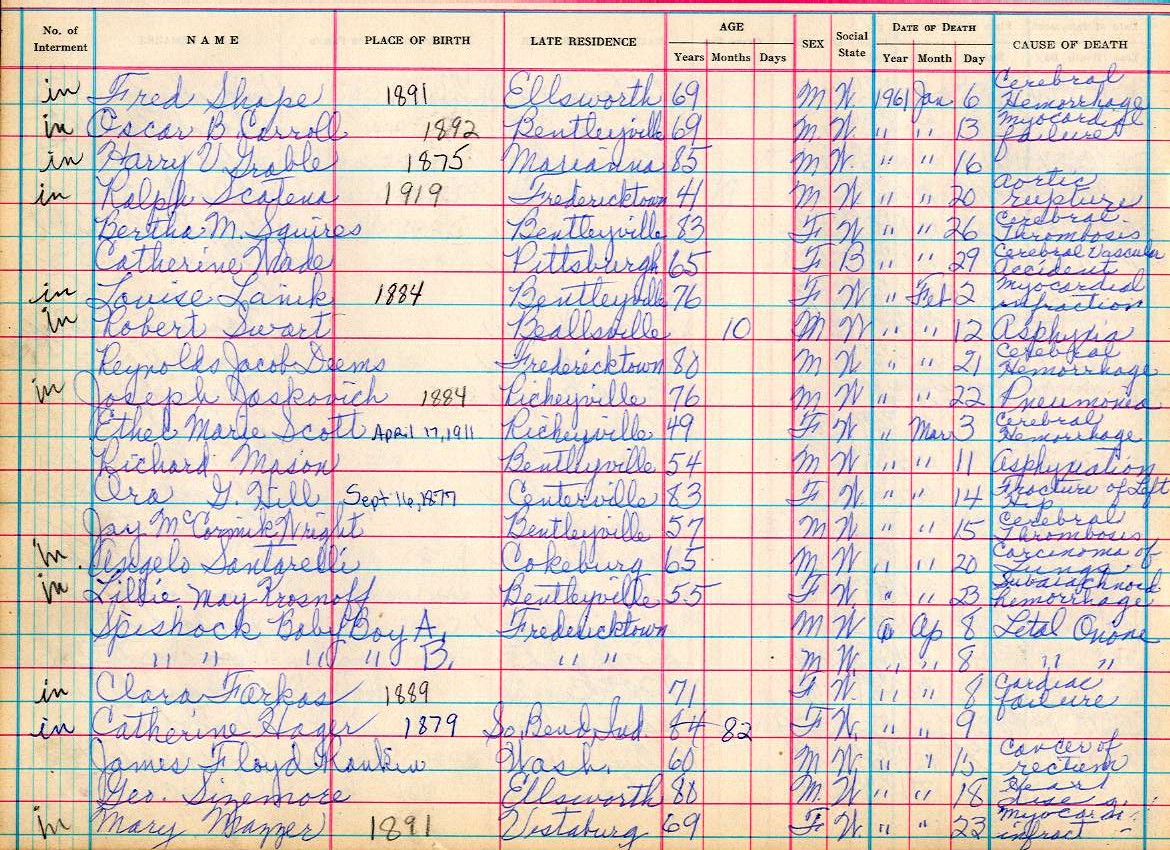 No. of Interment NAME PLACE OF BIRTH LATE RESIDENCE AGE Years Months Days SEX Social State DATE OF DEATH Year Month Day CAUSE OF DEATH
in Fred Shape 1891 Ellsworth 69 M W. 1961 Jan 6 Cerebral Hemorrhage
in Oscar B. Carroll 1892 Bentleyville 69 M W. " " 13 Myocardial failure
in Harry V. Grable 1875 Marianna 85 M W. " " 16
in Ralph Scatena 1919 Fredericktown 41 M W " " 20 Aortic rupture
Bertha M. Squires Bentleyville 83 F W " " 26 Cerebral Thrombosis
Catherine Wade Pittsburgh 65 F B " " 29 Cerebral Vascular Accident
in Louise Lanik 1884 Bentleyville 76 F W " Feb 2 Myocardial infraction
in Robert Swart Beallsville 10 M W " " 12 Asphyxia
Reynolds Jacob Deems Fredericktown 80 M W " " 21 Cerebral Hemorrhage
in Joseph Joskovich 1884 Richeyville 76 M W " " 22 Pneumonia
Ethel Marie Scott April 17, 1911 Richeyville 49 F W " Mar 3 Cerebral Hemorrhage
Richard Mason Bentleyville 54 M W " " 11 Asphyxiation
Ora G. Hill Sept 16, 1877 Centerville 83 F W " " 14 Fracture of Left Hip
Jay McCormik Wright Bentleyville 57 M W " " 15 Cerebral Thrombosis
in Angelo Santarelli Cokeburg 65 M W " " 20 Carcinoma of Lungs
in Lillie May Krosnoff Bentleyville 55 F W " " 23 Subarachnoid hemorrhage
Spishock Baby Boy A. Fredericktown M W Ap 8 Letal Onone
" " " " B. " " M W. " " 8 " "
in Clara Farkas 1889 71 F W. " " 8 Cardiac failure
in Catherine Hager 1879 So. Bend, Ind. 64 82 F W. " " 9
James Floyd Rankin Wash. 60 M W " " 15 Cancer of rectum
Geo. Sizemore Ellsworth 80 M. W " " 18 Heart
in Mary Mazzer 1891 Vestaburg 69 F W. " " 23 infract